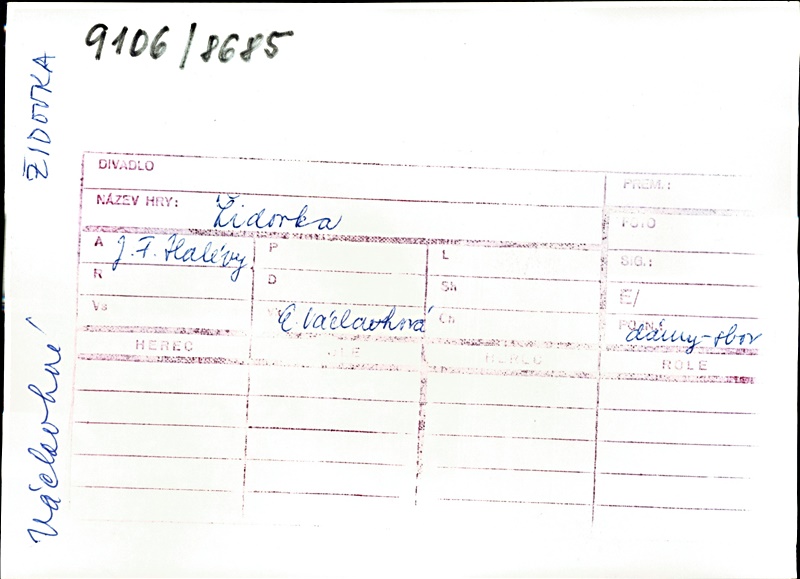 9106/8685
ŽIDOVKA
Václavhové
DIVADLO
PREM.:
NÁZEV HRY: Židovka
FOTO
A J. F. Halévy P L
SIG.:
R D Sh
E/
Vs E. Václavhová Ch
POZN.: dámy-sbor
HEREC ROLE HEREC ROLE